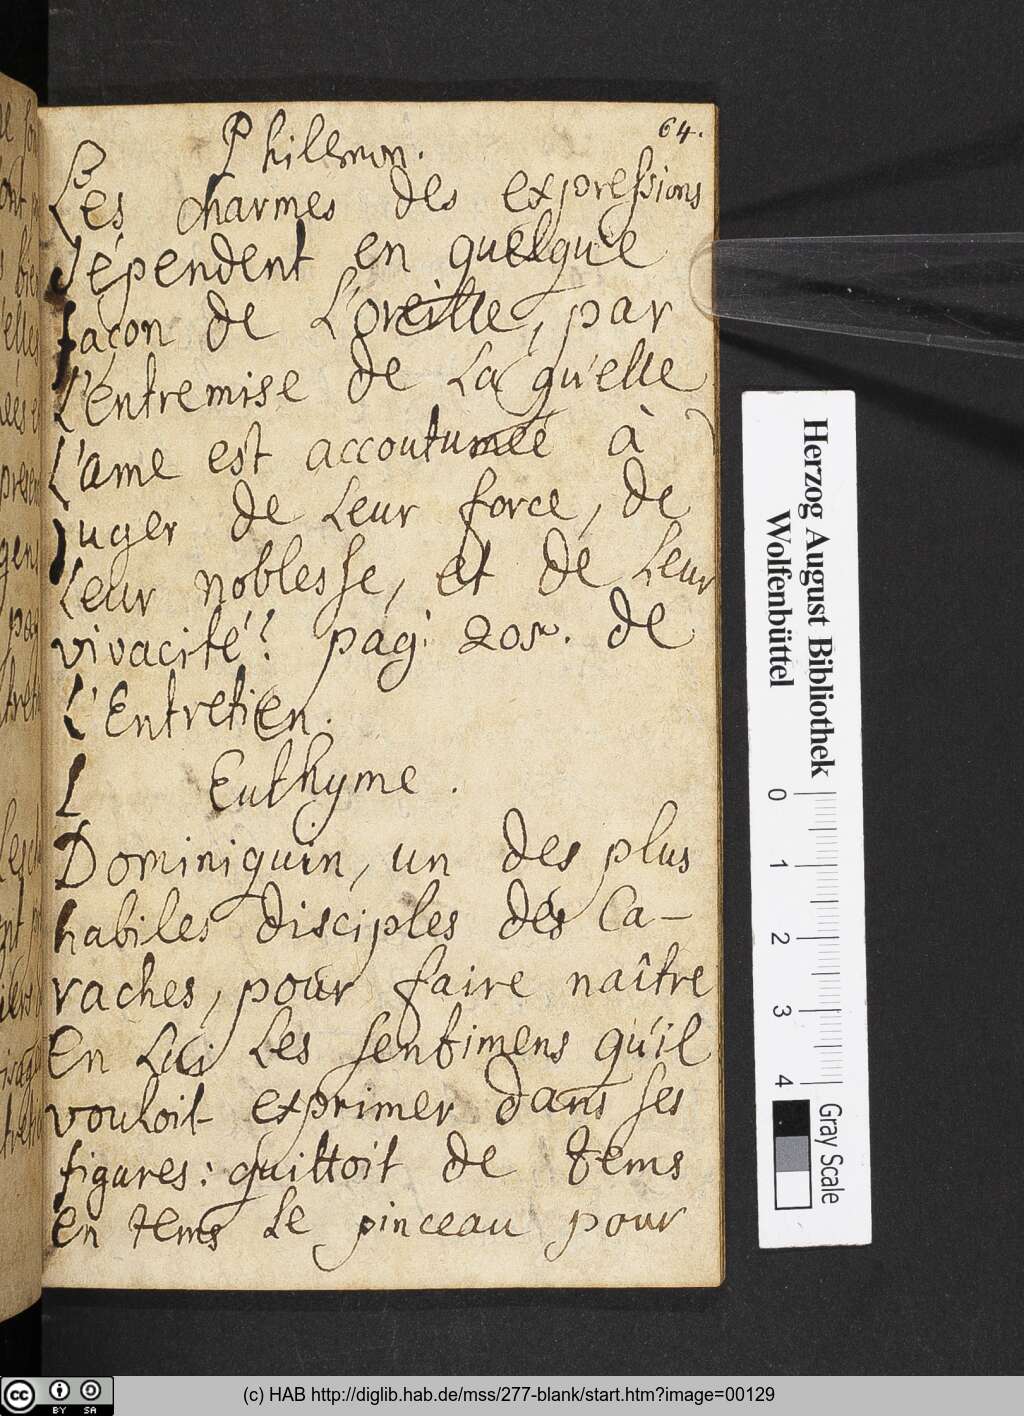 64.
Philemon.
Les charmes des expressions
dépendent en quelque
façon de L'oreille, par
L'entremise de La qu'elle
L'ame est accoutumée à
juger de Leur force, de
Leur noblesse, et de Leur
vivacité? pag: 205. de
L'Entretien.
L Euthyme.
Dominiquin, un des plus
habiles disciples des Ca-
raches, pour faire naître
en Lui Les sentimens qu'il
vouloit exprimer dans ses
figures: quittoit de tems
en tems Le pinceau pour
Herzog August Bibliothek
Wolfenbüttel
0 1 2 3 4
Gray Scale
cc BY SA
(c) HAB http://diglib.hab.de/mss/277-blank/start.htm?image=00129